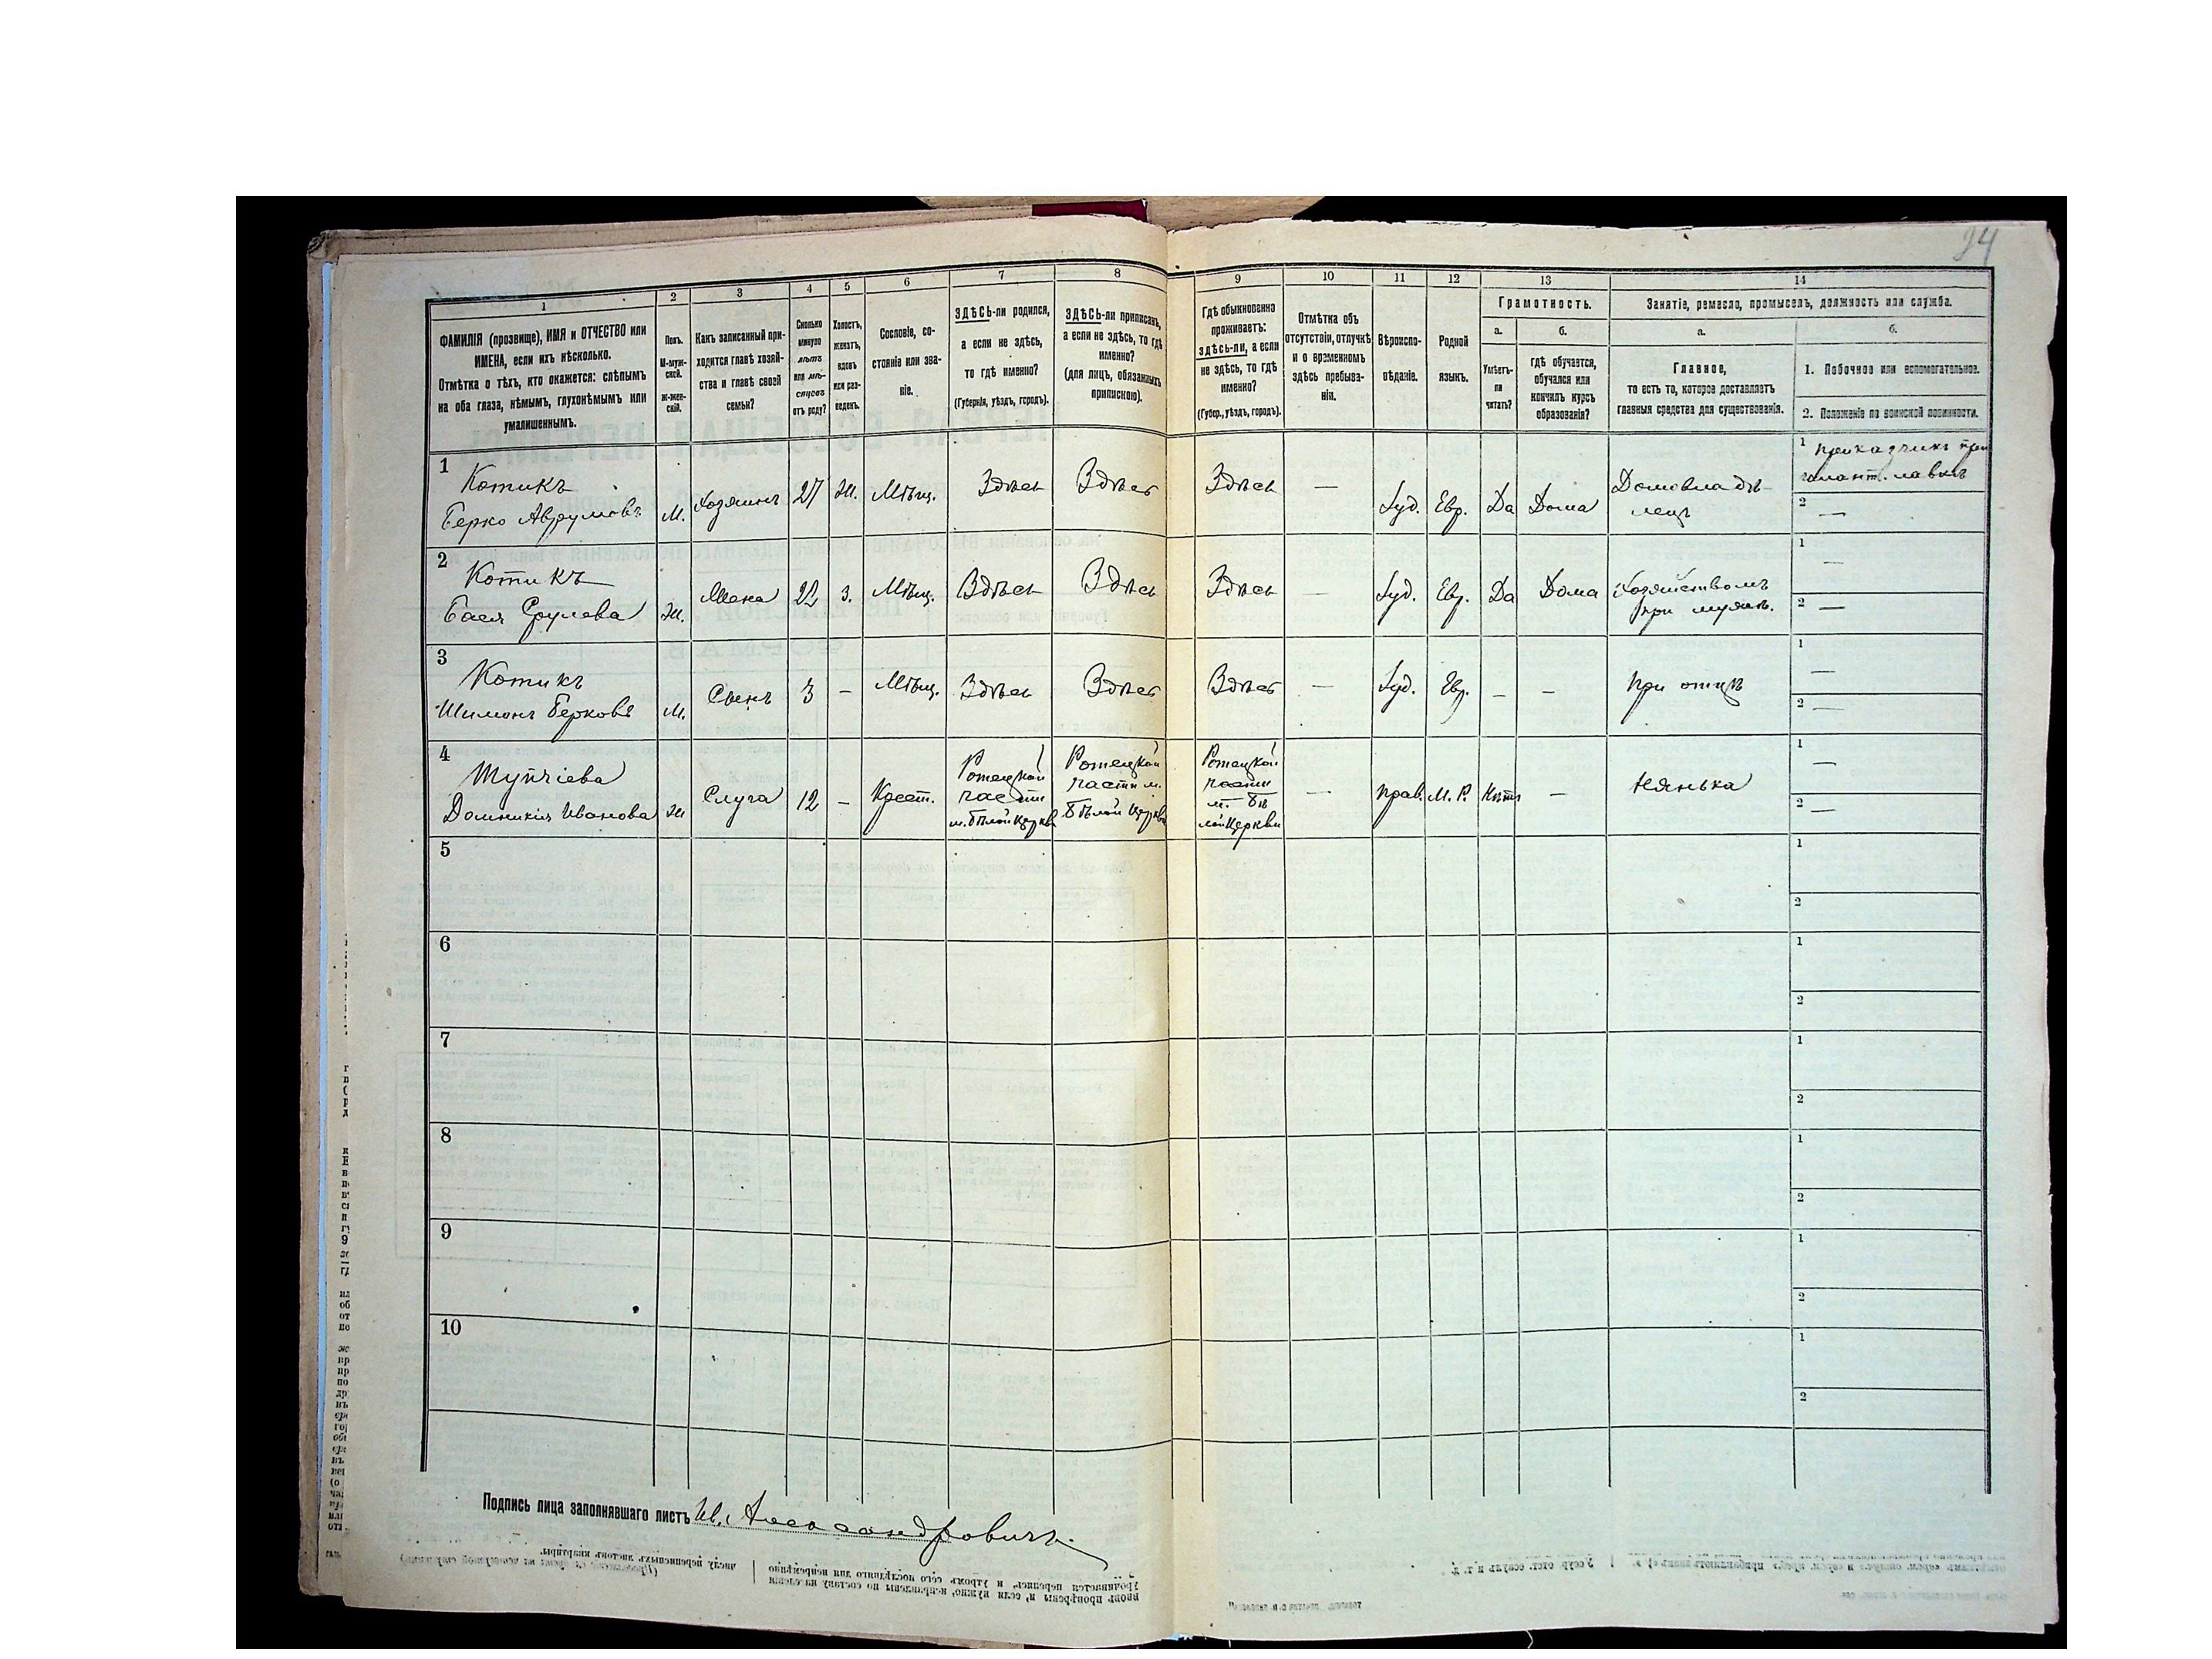 94
1
2
3
4
5
6
7
8
9
10
11
12
13
14
ФАМИЛІЯ (прозвище), ИМЯ и ОТЧЕСТВО или
ИМЕНА, если ихъ нѣсколько.
Отмѣтка о тѣхъ, кто окажется: слѣпымъ
на оба глаза, нѣмымъ, глухонѣмымъ или
умалишеннымъ.
Полъ.
М-муж-
ской.
ж-жен-
скій.
Какъ записанный при-
ходится главѣ хозяй-
ства и главѣ своей
семьи?
Сколько
минуло
лѣтъ
или мѣ-
сяцевъ
отъ роду?
Холостъ,
женатъ,
вдовъ
или раз-
веденъ.
Сословіе, со-
стояніе или зва-
ніе.
ЗДѢСЬ-ли родился,
а если не здѣсь,
то гдѣ именно?
(Губернія, уѣздъ, городъ).
ЗДѢСЬ-ли приписанъ,
а если не здѣсь, то гдѣ
именно?
(для лицъ, обязанныхъ
припискою).
Гдѣ обыкновенно
проживаетъ:
здѣсь-ли, а если
не здѣсь, то гдѣ
именно?
(Губер., уѣздъ, городъ).
Отмѣтка объ
отсутствіи, отлучкѣ
и о временномъ
здѣсь пребыва-
ніи.
Вѣроиспо-
вѣданіе.
Родной
языкъ.
Грамотность.
а.
Умѣетъ-
ли
читать?
б.
гдѣ обучается,
обучался или
кончилъ курсъ
образованія?
Занятіе, ремесло, промыселъ, должность или служба.
а.
Главное,
то есть то, которое доставляетъ
главныя средства для существованія.
б.
1. Побочное или вспомогательное.
2. Положеніе по воинской повинности.
1
Котикъ
Берко Аврумовъ
М.
Хозяинъ
27
Ж.
Мѣщ.
Здѣсь
Здѣсь
Здѣсь
—
Іуд.
Евр.
Да
Дома
Домовладѣ-
лецъ
1 Приказчикъ при
галант. лавкѣ
2 —
2
Котикъ
Бася Срулева
Ж.
Жена
22
З.
Мѣщ.
Здѣсь
Здѣсь
Здѣсь
—
Іуд.
Евр.
Да
Дома
Хозяйствомъ
при мужѣ.
1 —
2 —
3
Котикъ
Шимонъ Берковъ
М.
Сынъ
3
–
Мѣщ.
Здѣсь
Здѣсь
Здѣсь
—
Іуд.
Евр.
–
–
При отцѣ
1 —
2 —
4
Домникія Иванова
Ж
Слуга
12
–
Крест.
Ротецкой
части
м. Бѣлой Церкви
Ротецкой
части м.
Бѣлой Церкви
Ротецкой
части
м. Бѣ
лой Церкви
—
Прав.
М. Р.
Нѣтъ
–
Нянька
1 —
2 —
5
1
2
6
1
2
7
1
2
8
1
2
9
1
2
10
1
2
Подпись лица заполнявшаго листъ Ив. Александровичъ.